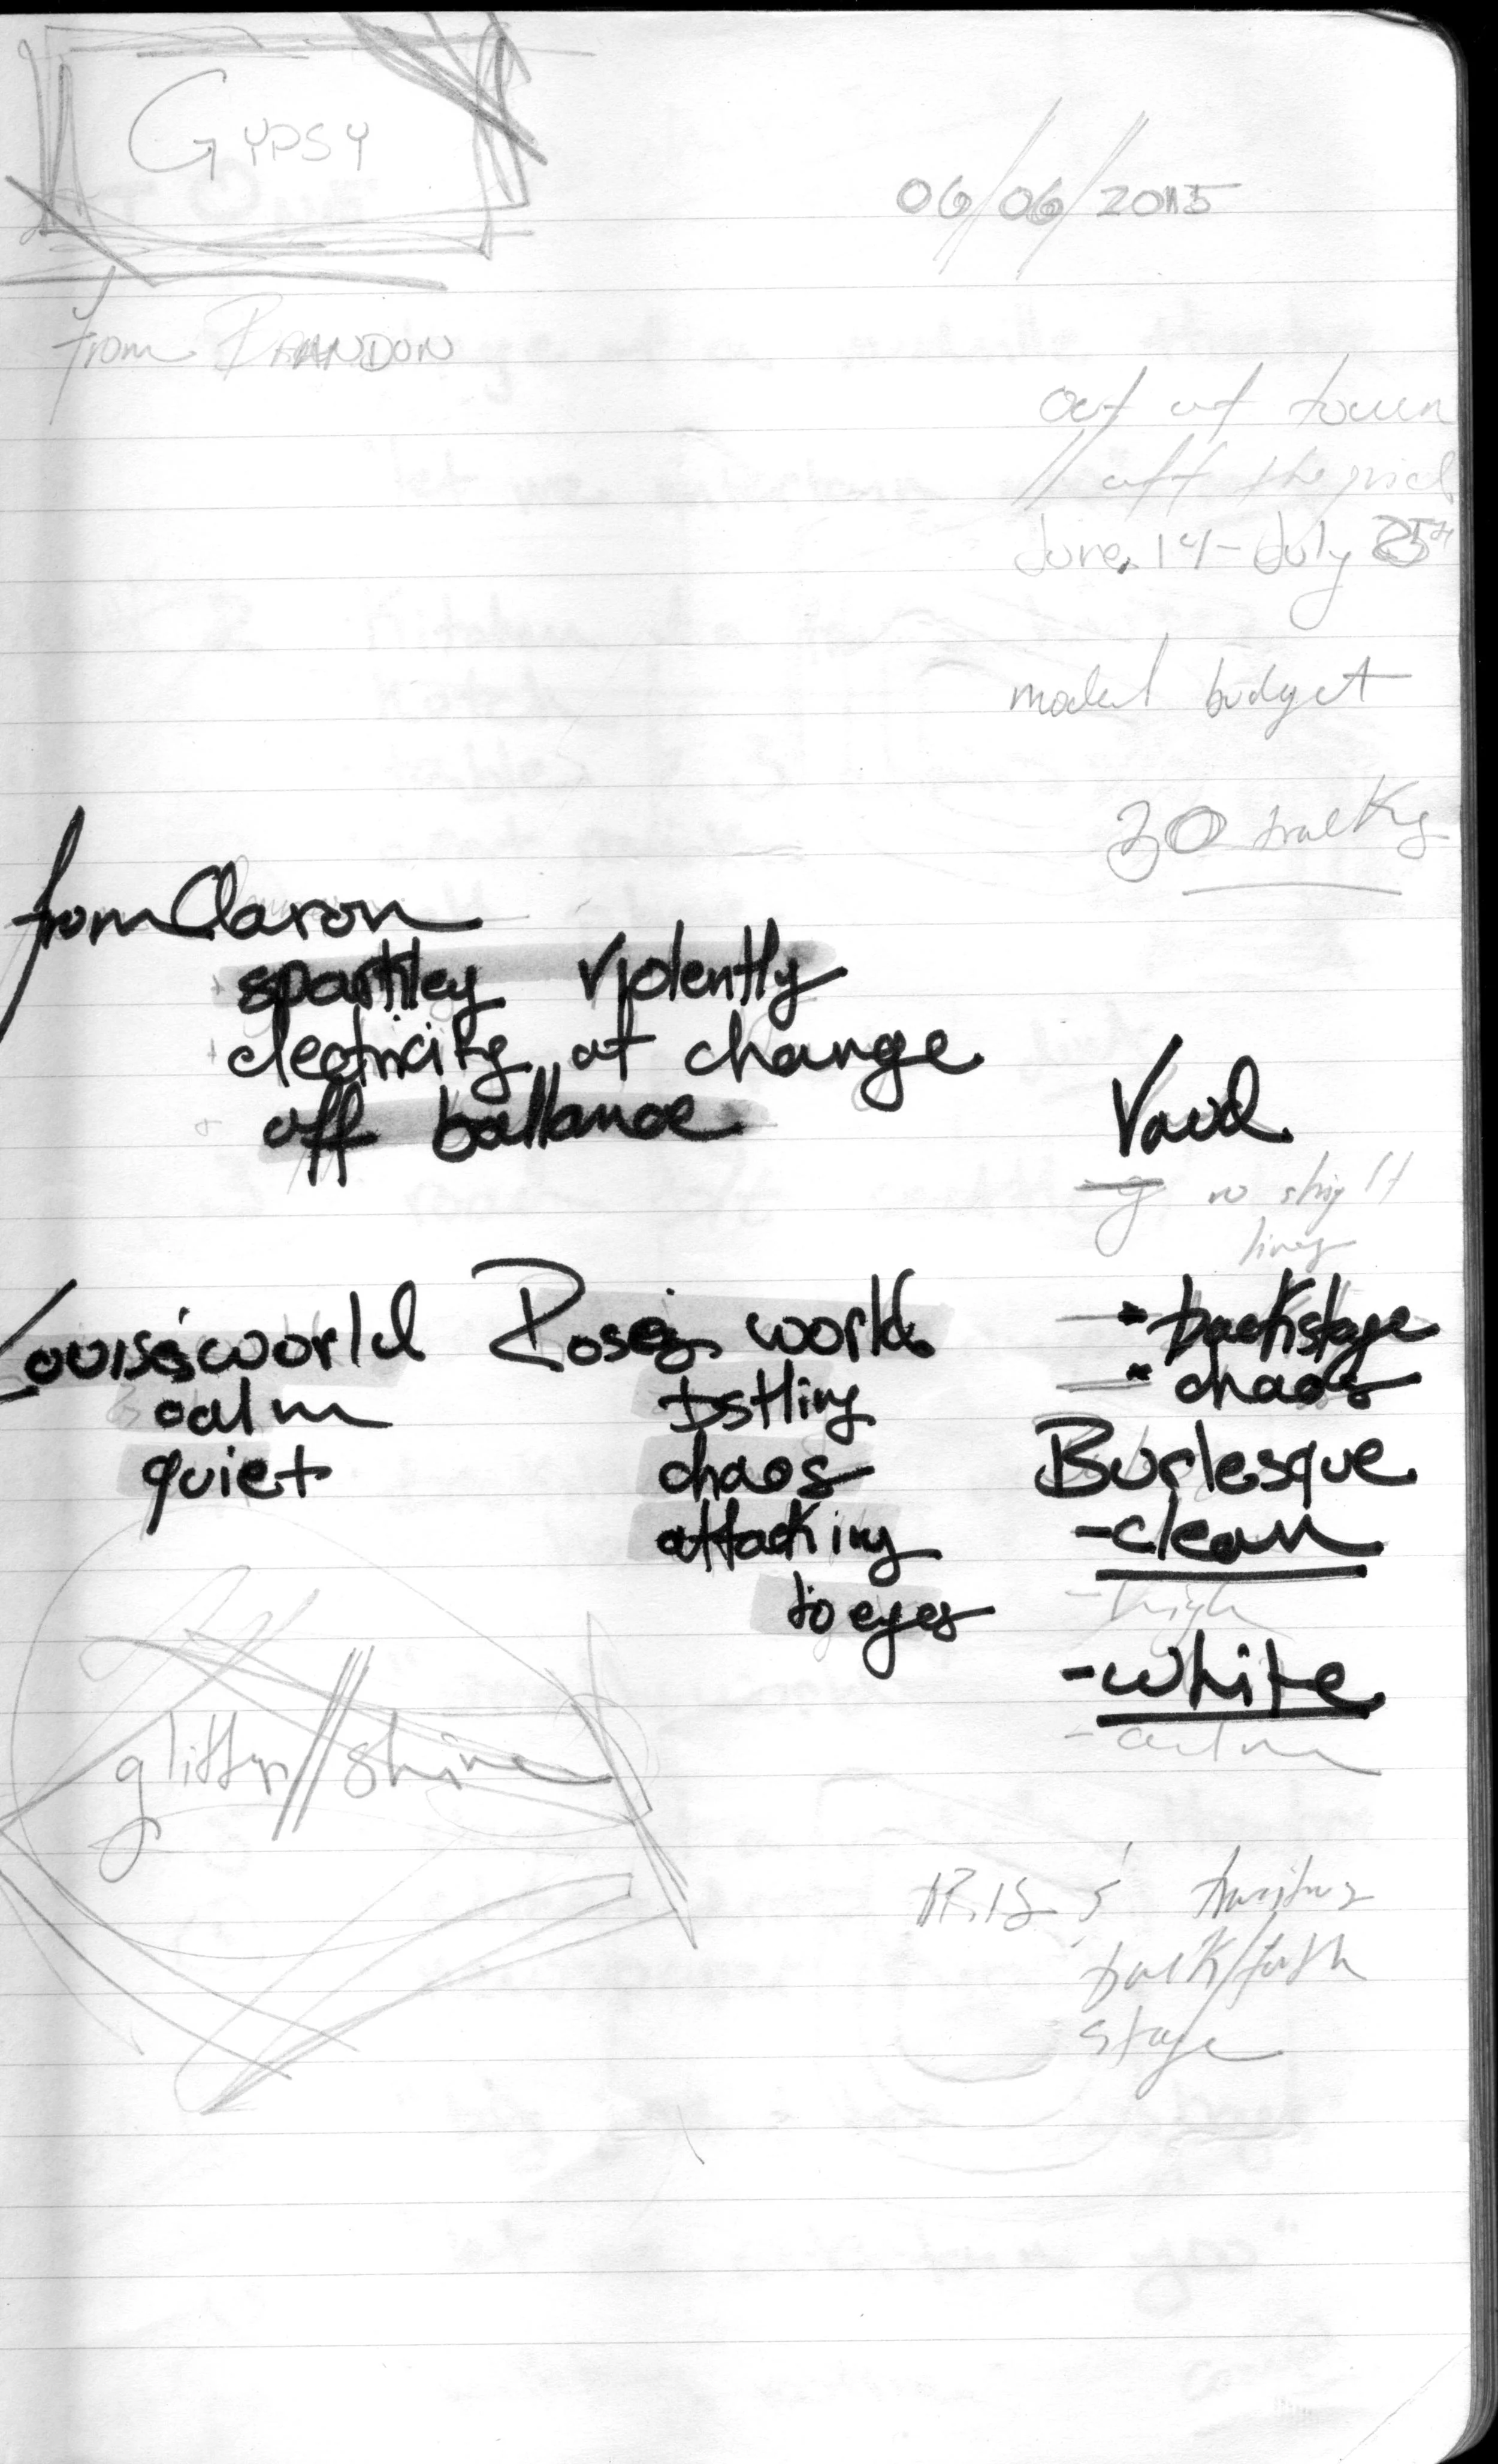 GYPSY
06/06/2015
from BRANDON
out of town
// off the grid
June 14 - July 25th
model budget
30 tracks
from Claron
sparkley violently
electricity at change
off ballance
Vaud
no
lines
Louise's world
calm
quiet
Rose's world
chaos
attacking
to eyes
* backstage
* chaos
Burlesque
- clean
- high
- white
- calm
glitter // shine
back/forth
stage